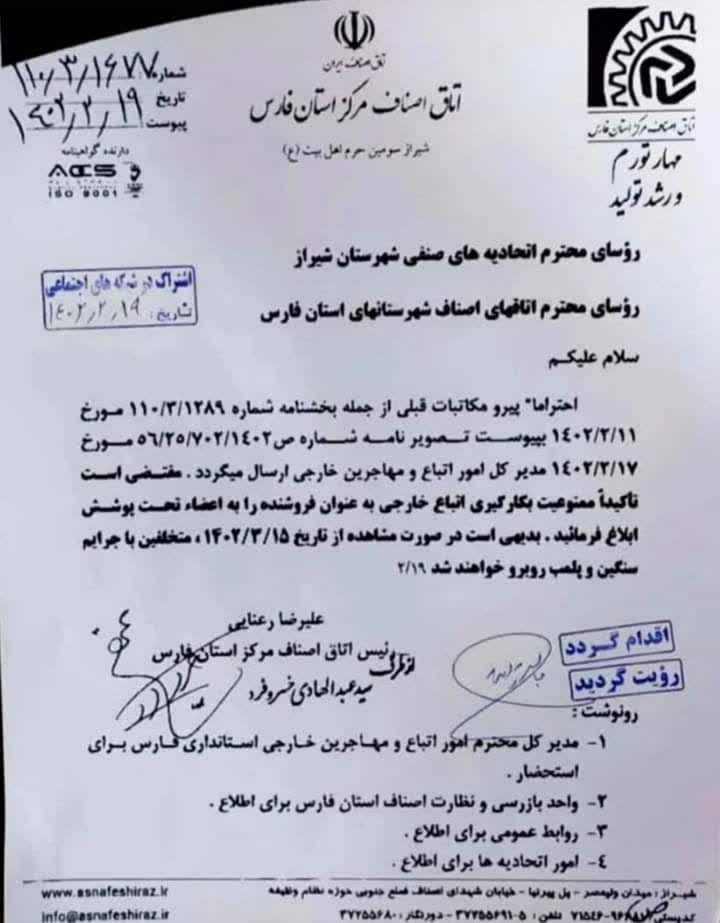 اتاق اصناف ایران
اتاق اصناف مرکز استان فارس
شیراز سومین حرم اهل بیت (ع)
اتاق اصناف مرکز استان فارس
مهار تورم
و رشد تولید
شماره ۱۱۰/۳/۱۶۷۷
تاریخ ۱۴۰۲/۲/۱۹
پیوست
دارنده گواهینامه
ACS
ISO 9001
رؤسای محترم اتحادیه های صنفی شهرستان شیراز
اشتراک در شبکه های اجتماعی
تاریخ: ۱۴۰۲/۲/۱۹
رؤسای محترم اتاقهای اصناف شهرستانهای استان فارس
سلام علیکم
احتراما" پیرو مکاتبات قبلی از جمله بخشنامه شماره ۱۱۰/۳/۱۲۸۹ مورخ
۱۴۰۲/۲/۱۱ بپیوست تصویر نامه شماره ص۵۶/۲۵/۷۰۲/۱۴۰۲ مورخ
۱۴۰۲/۲/۱۷ مدیر کل امور اتباع و مهاجرین خارجی ارسال میگردد . مقتضی است
تأکیداً ممنوعیت بکارگیری اتباع خارجی به عنوان فروشنده را به اعضاء تحت پوشش
ابلاغ فرمائید . بدیهی است در صورت مشاهده از تاریخ ۱۴۰۲/۳/۱۵ ، متخلفین با جرایم
سنگین و پلمب روبرو خواهند شد ۲/۱۹
علیرضا رعنایی
رئیس اتاق اصناف مرکز استان فارس
از طرف
سید عبدالهادی خسروفرد
اقدام گردد
رؤیت گردید
رونوشت :
۱- مدیر کل محترم امور اتباع و مهاجرین خارجی استانداری فارس برای
استحضار .
۲- واحد بازرسی و نظارت اصناف استان فارس برای اطلاع .
۳- روابط عمومی برای اطلاع .
۴- امور اتحادیه ها برای اطلاع .
شیراز: میدان ولیعصر - پل پیرنیا - خیابان شهدای اصناف ضلع جنوبی حوزه نظام وظیفه
www.asnafeshiraz.ir
تلفن: ۵-۳۷۲۵۵۶۹۱ - دورنگار: ۳۷۲۵۵۶۸۰
info@asnafeshiraz.ir